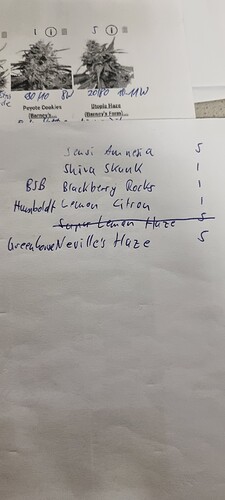 1 5
80/10 8W 20/80 10-11W
Peyote Cookies Utopia Haze
(Barney's... (Barney's Farm)...
Sensi Amnesia 5
Shiva Skunk 1
BSB Blackberry Rocks 1
Humboldt Lemon Citron 1
Super Lemon Haze 5
Greenhouse Neville's Haze 5